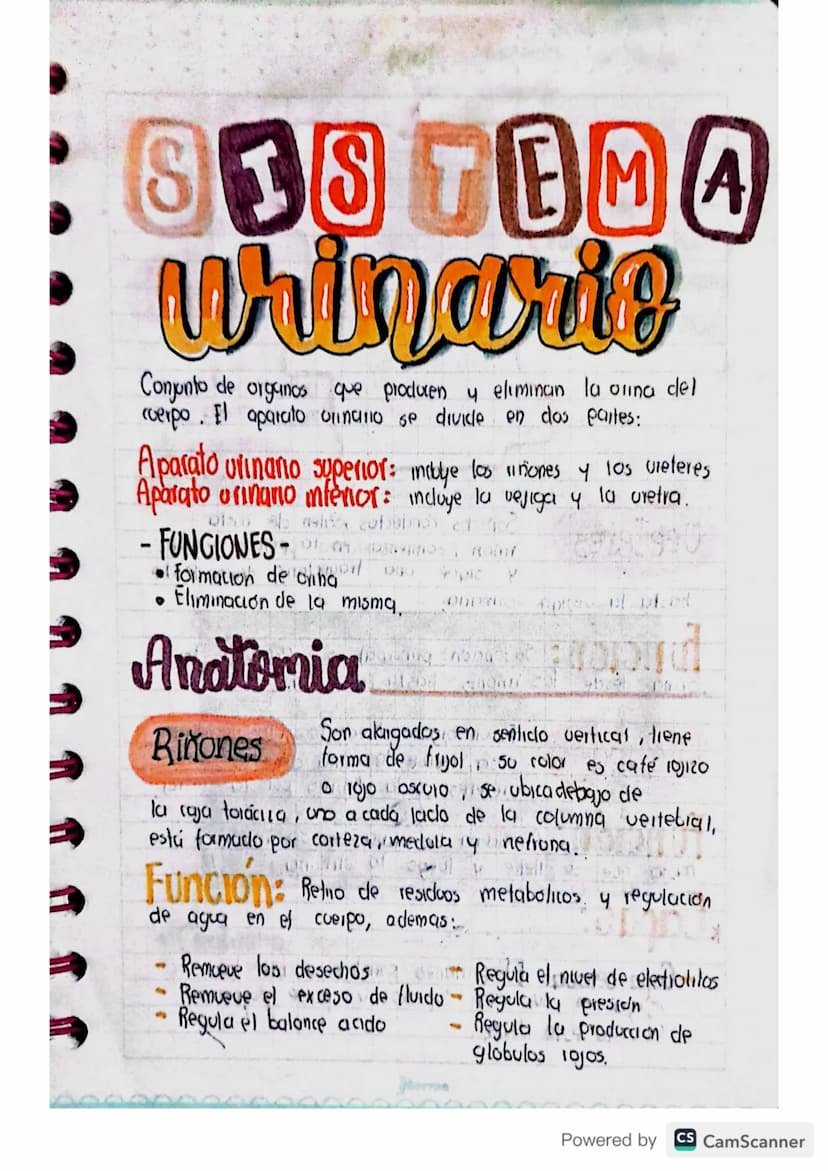 SISTEMA
urinario
Conjunto de organos que producen y eliminan la orina del
cuerpo. El aparato urinario se divide en dos partes:
Aparato urinario superior: incluye los riñones y los ureteres
Aparato urinario inferior: incluye la vejiga y la uretra.
- FUNCIONES -
• formacion de orina
• Eliminación de la misma.
Anatomia
Riñones
Son alargados en sentido vertical, tiene
forma de frijol, su color es café rojizo
o rojo oscuro, se ubica debajo de
la caja torácica, uno a cada lado de la columna vertebral,
está formado por corteza, medula y nefrona.
Función: Retiro de residuos metabolicos y regulación
de agua en el cuerpo, ademas:
- Remueve los desechos
- Remueve el exceso de fluido
- Regula el balance acido
- Regula el nivel de electrolitos
- Regula la presion
- Regula la produccion de
globulos rojos.
Powered by CS CamScanner